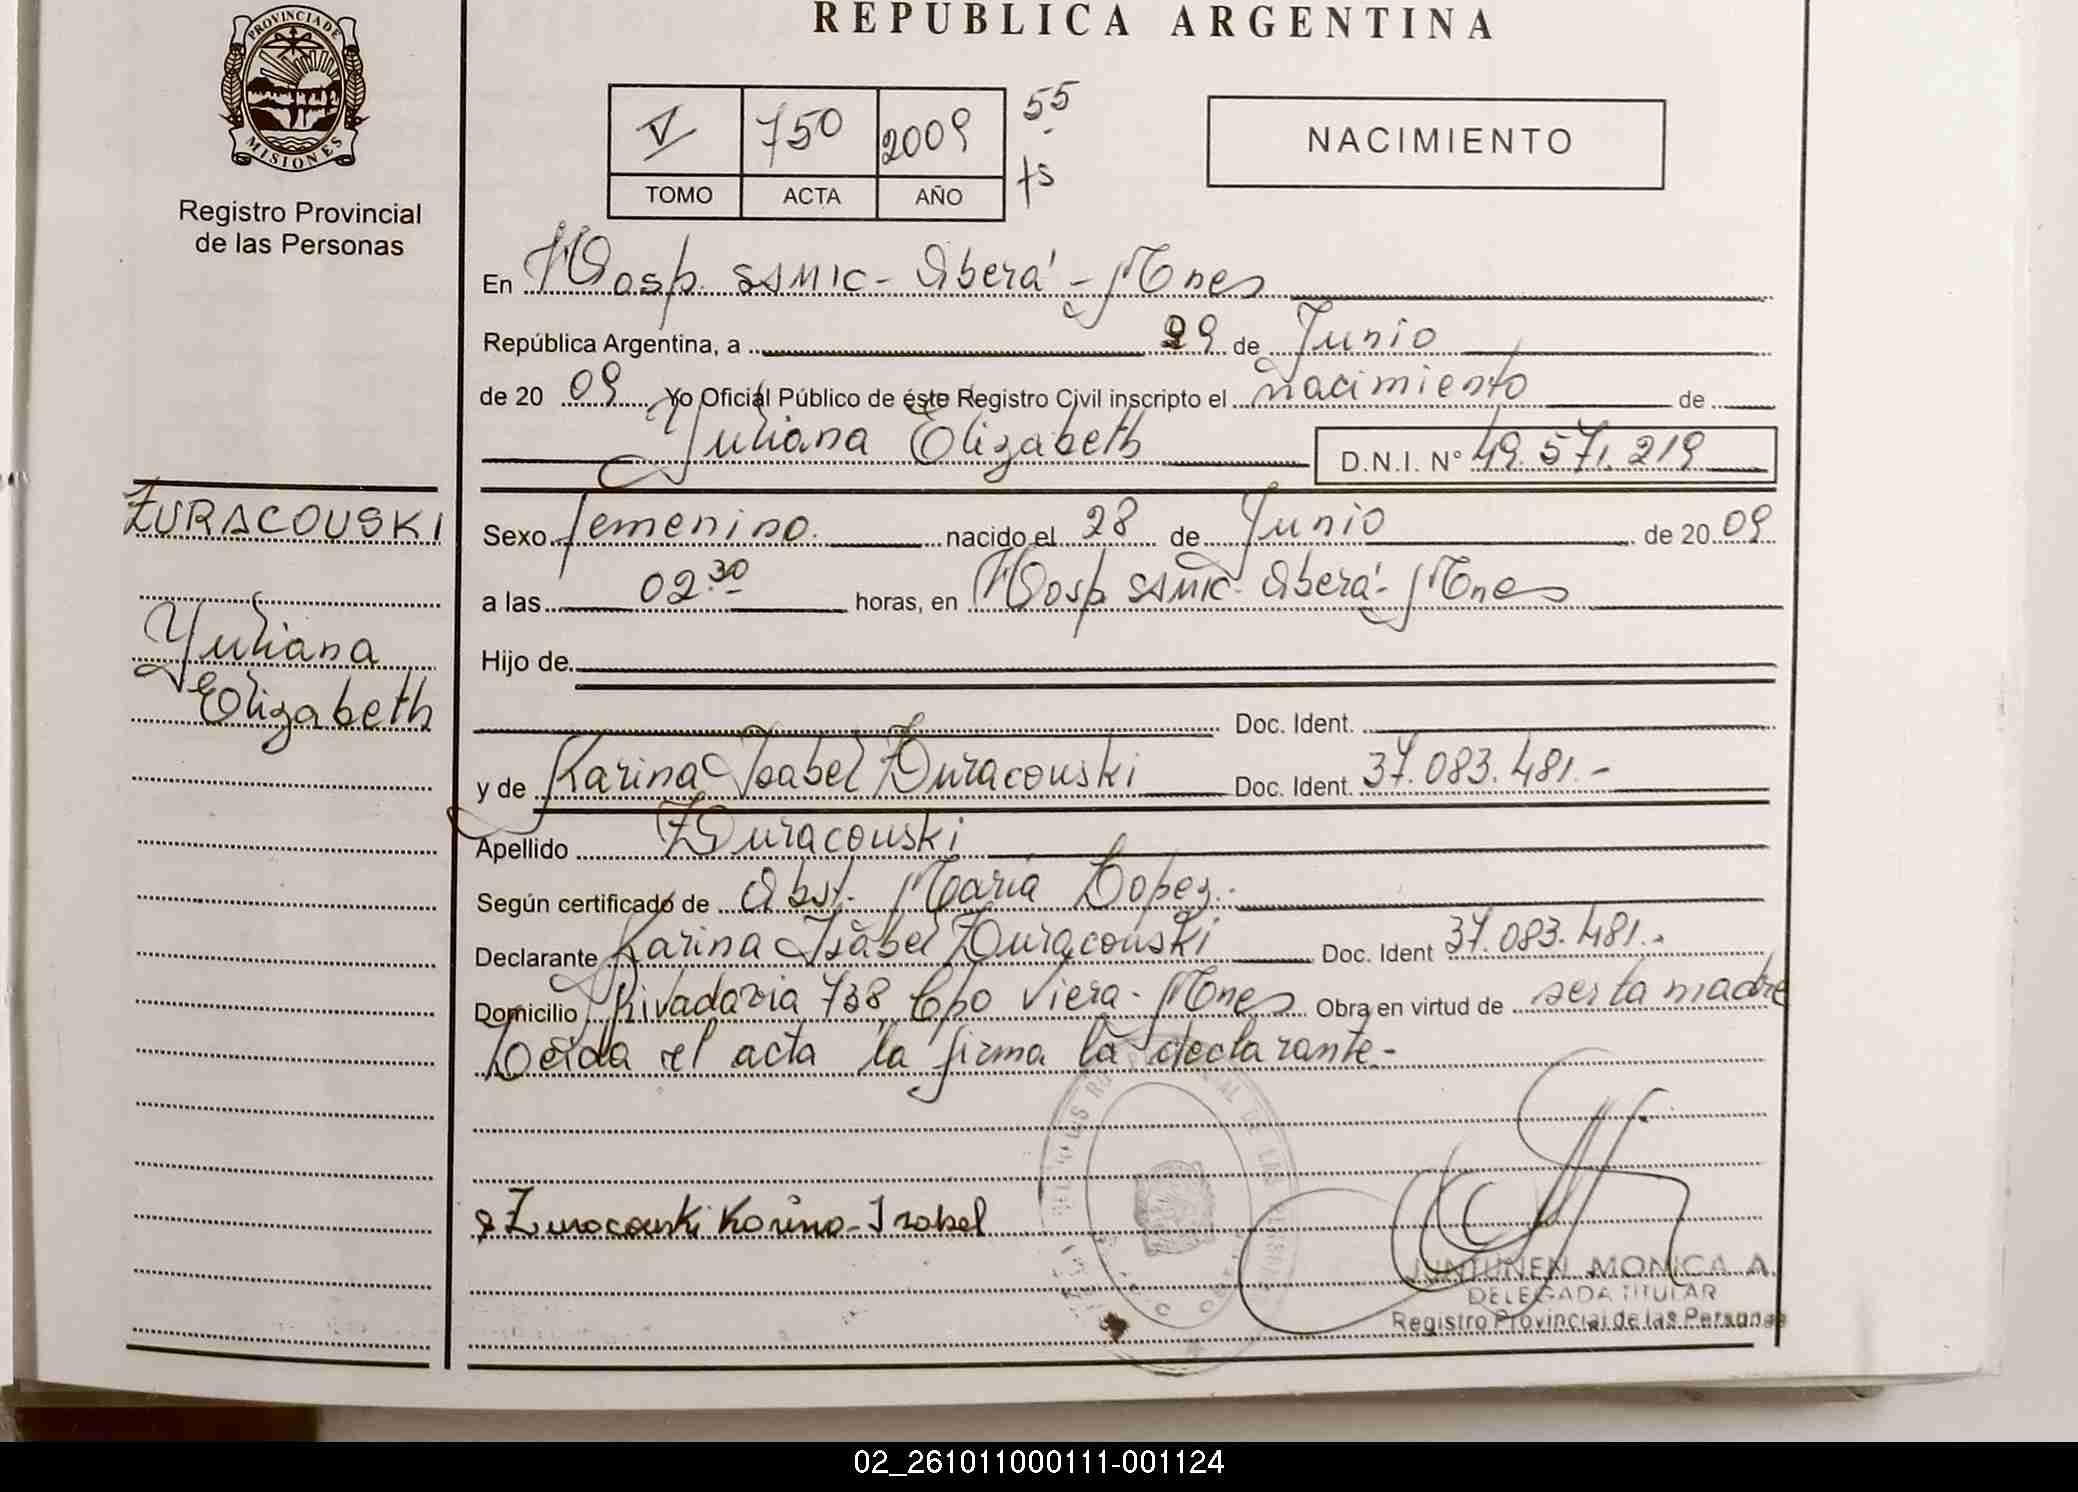 REPUBLICA ARGENTINA
PROVINCIA DE
MISIONES
Registro Provincial
de las Personas
V 750 2009 55
TOMO ACTA AÑO fs
NACIMIENTO
En Hosp. SAMIC - Oberá - Mnes
República Argentina, a 29 de Junio
de 20 09 Yo Oficial Público de éste Registro Civil inscripto el nacimiento de
Yuliana Elizabeth D.N.I. N° 49.571.219
ZURACOUSKI
Yuliana
Elizabeth
Sexo femenino. nacido el 28 de Junio de 20 09
a las 02.30 horas, en Hosp SAMIC - Oberá - Mnes
Hijo de
Doc. Ident.
y de Karina Isabel Zuracouski Doc. Ident. 37.083.481.-
Apellido Zuracouski
Según certificado de Obst. María Lopez.
Declarante Karina Isabel Zuracouski Doc. Ident 37.083.481.-
Domicilio Rivadavia 738 Cpo Viera - Mnes Obra en virtud de ser la madre
Leída el acta la firma la declarante-
Zuracouski Karina-Isabel
JUNTUNEN MONICA A.
DELEGADA TITULAR
Registro Provincial de las Personas
02_261011000111-001124